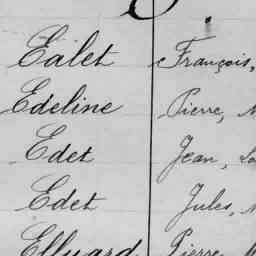 Ealet François,
Edeline Pierre,
Edet Jean,
Edet Jules,
Elluard Pierre